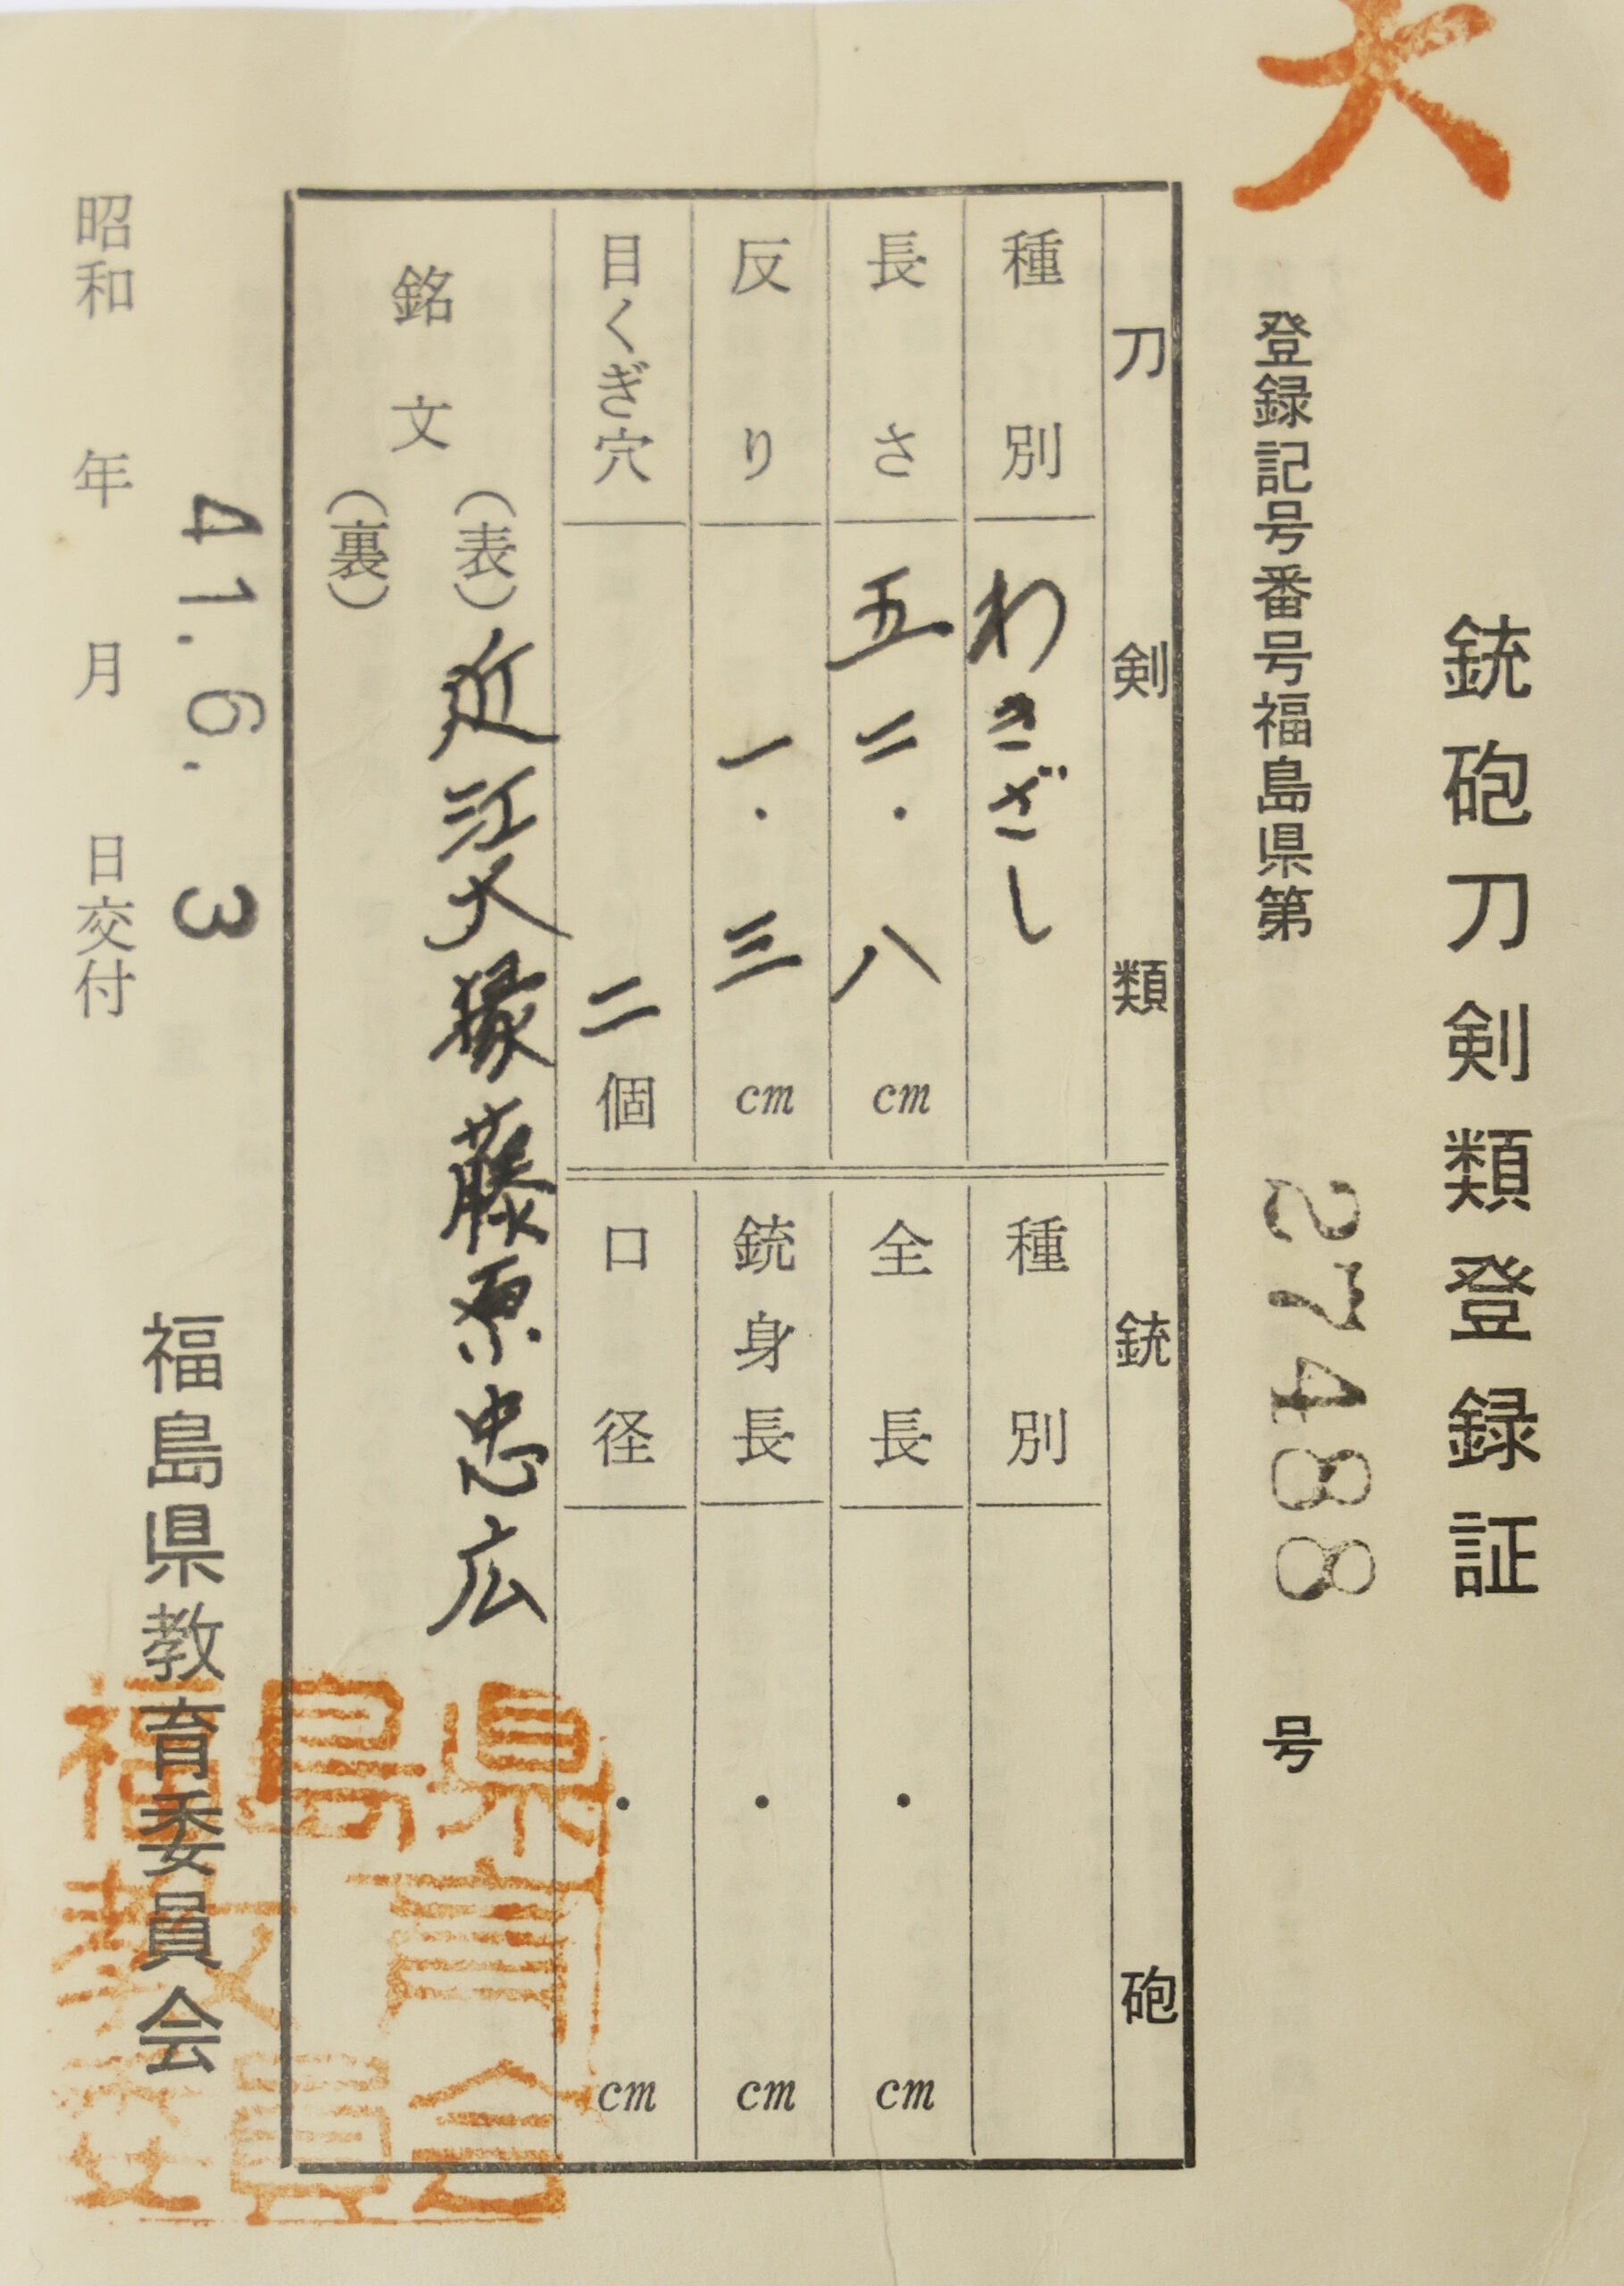 大
銃砲刀剣類登録証
登録記号番号福島県第 27488 号
刀剣類
種別 わきざし
長さ 五二・八 cm
反り 一・三 cm
目くぎ穴 二個
銃砲
種別
全長 ・ cm
銃身長 ・ cm
口径 ・ cm
銘文
(表) 近江大掾藤原忠広
(裏)
41. 6. 3
昭和 年 月 日交付
福島県教育委員会
福島県
教育
委員会